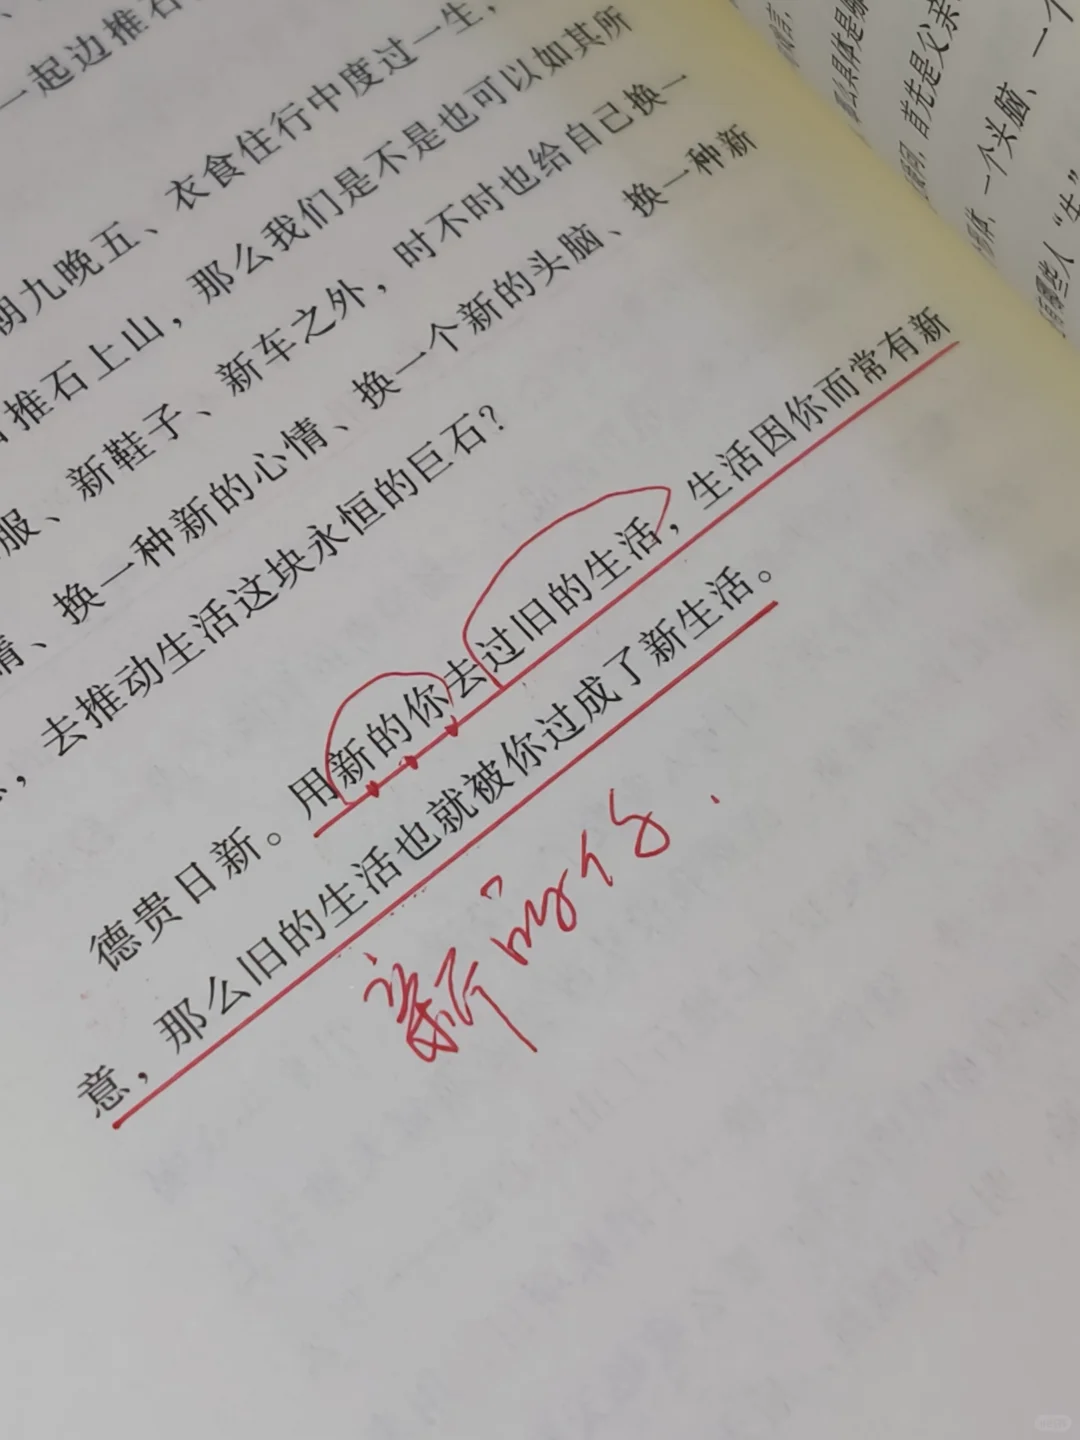 一起边推石
朝九晚五、衣食住行中度过一生，
推石上山，那么我们是不是也可以如其所
服、新鞋子、新车之外，时不时也给自己换一
情、换一种新的心情、换一个新的头脑、换一种新
，去推动生活这块永恒的巨石？
德贵日新。用新的你去过旧的生活，生活因你而常有新
意，那么旧的生活也就被你过成了新生活。
新的你.
首先是父亲
一个头脑、一个
哪些人“生”